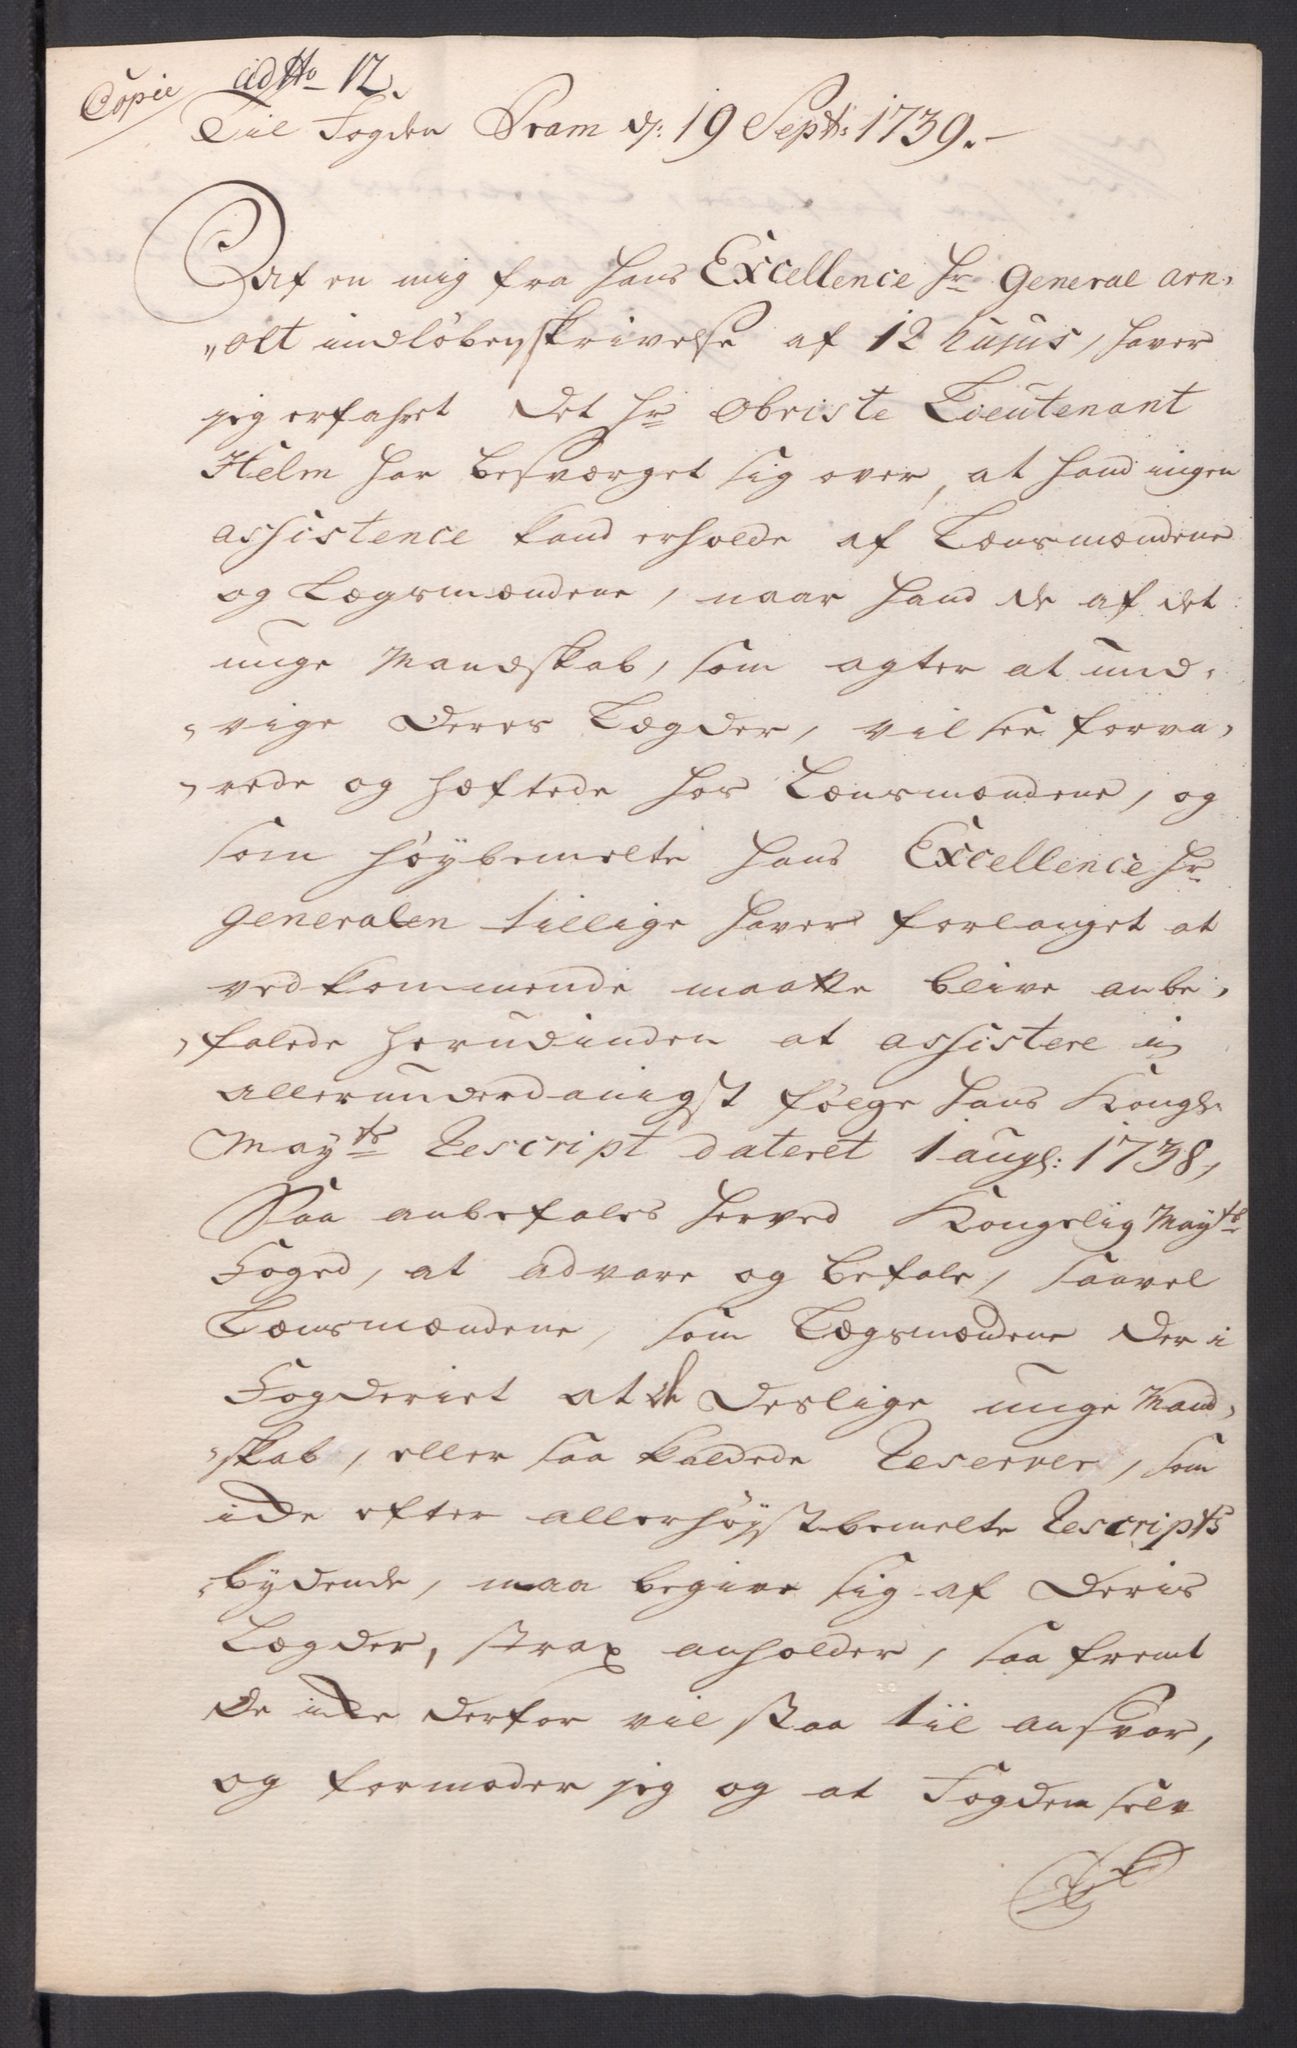 Copie
ad No 12.
Til Fogden Pram d: 19 Septb: 1739.-
Af en mig fra hans Excellence Hr General Arn-
"olt indløben skrivelse af 12 hujus, haver
jeg erfahret det Hr Obriste Lieutenant
Helm har besværget sig over, at hand ingen
assistence kand erholde af Lænsmændene
og Lægsmændene, naar hand de af det
unge Mandskab, som agter at und-
-vige deres Lægder, vil see forva-
-rede og hæftede hos Lænsmændene, og
som høybemelte hans Excellence Hr
Generalen tillige haver forlanget at
vedkommende maatte blive anbe-
-falede herudinden at assistere i
allerunderdanigst følge hans Kongl:
Mayts Rescript dateret 1 aug: 1738,
Saa anbefales herved Kongelig Mayts
Foged, at advare og befale, saavel
Lænsmændene, som Lægsmændene der i
Fogderiet at de deslige unge Mand-
-skab, eller saa kaldede Reserver, som
icke efter allerhøystbemelte Rescripts
-bydende, maa begive sig af deris
Lægder, strax anholder, saa fremt
de icke derfor vil staa til ansvar,
og formoder jeg og at Fogden selv